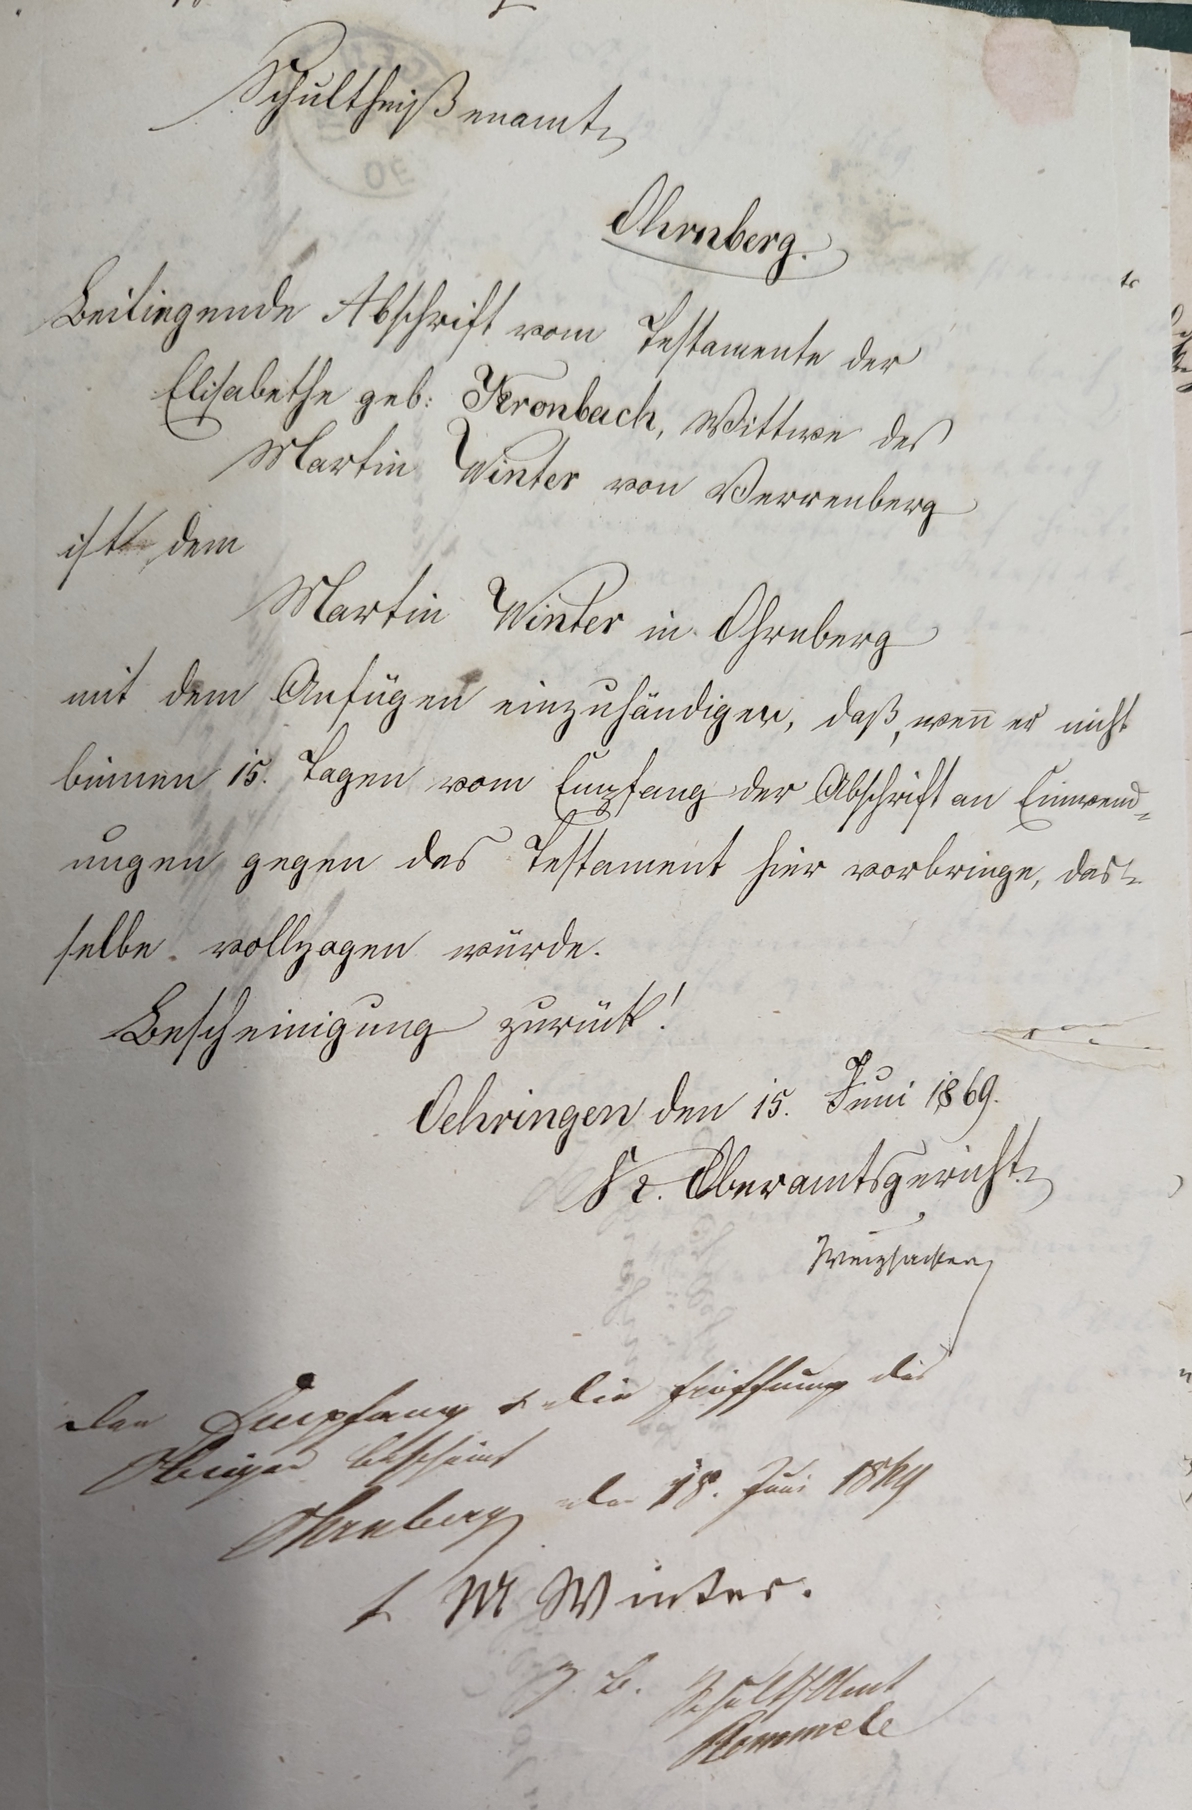 Schultheißenamt
Ohrnberg.
Beiliegende Abschrift vom Testamente der
Elisabethe geb: Kronbach, Wittwe des
Martin Winter von Verrenberg
ist dem
Martin Winter in Ohrnberg
mit dem Anfügen einzuhändigen, daß, wenn er nicht
binnen 15. Tagen vom Empfang der Abschrift an Einwend-
ungen gegen das Testament hier vorbringe, das-
selbe vollzogen würde.
Bescheinigung zurück!
Oehringen den 15. Juni 1869.
K. Oberamtsgericht.
Weizsäcker
Den Empfang & die Eröffnung des
Obigen bescheint
Ohrnberg den 18. Juni 1869
t. M Winter.
Z. B. Schulthß Amt
Rommele